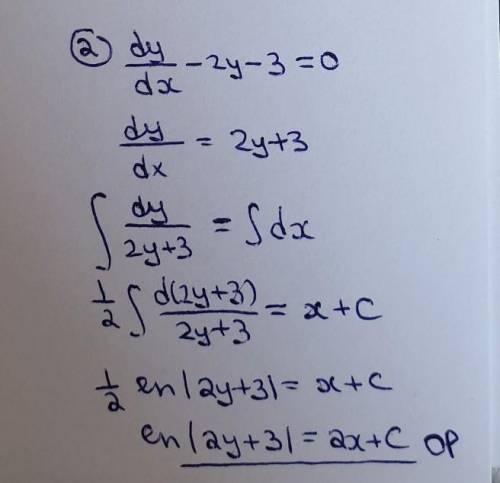 ② dy/dx - 2y - 3 = 0
dy/dx = 2y+3
∫ dy/(2y+3) = ∫dx
1/2 ∫ d(2y+3)/(2y+3) = x + C
1/2 en|2y+3| = x + C
en|2y+3| = 2x+C OP